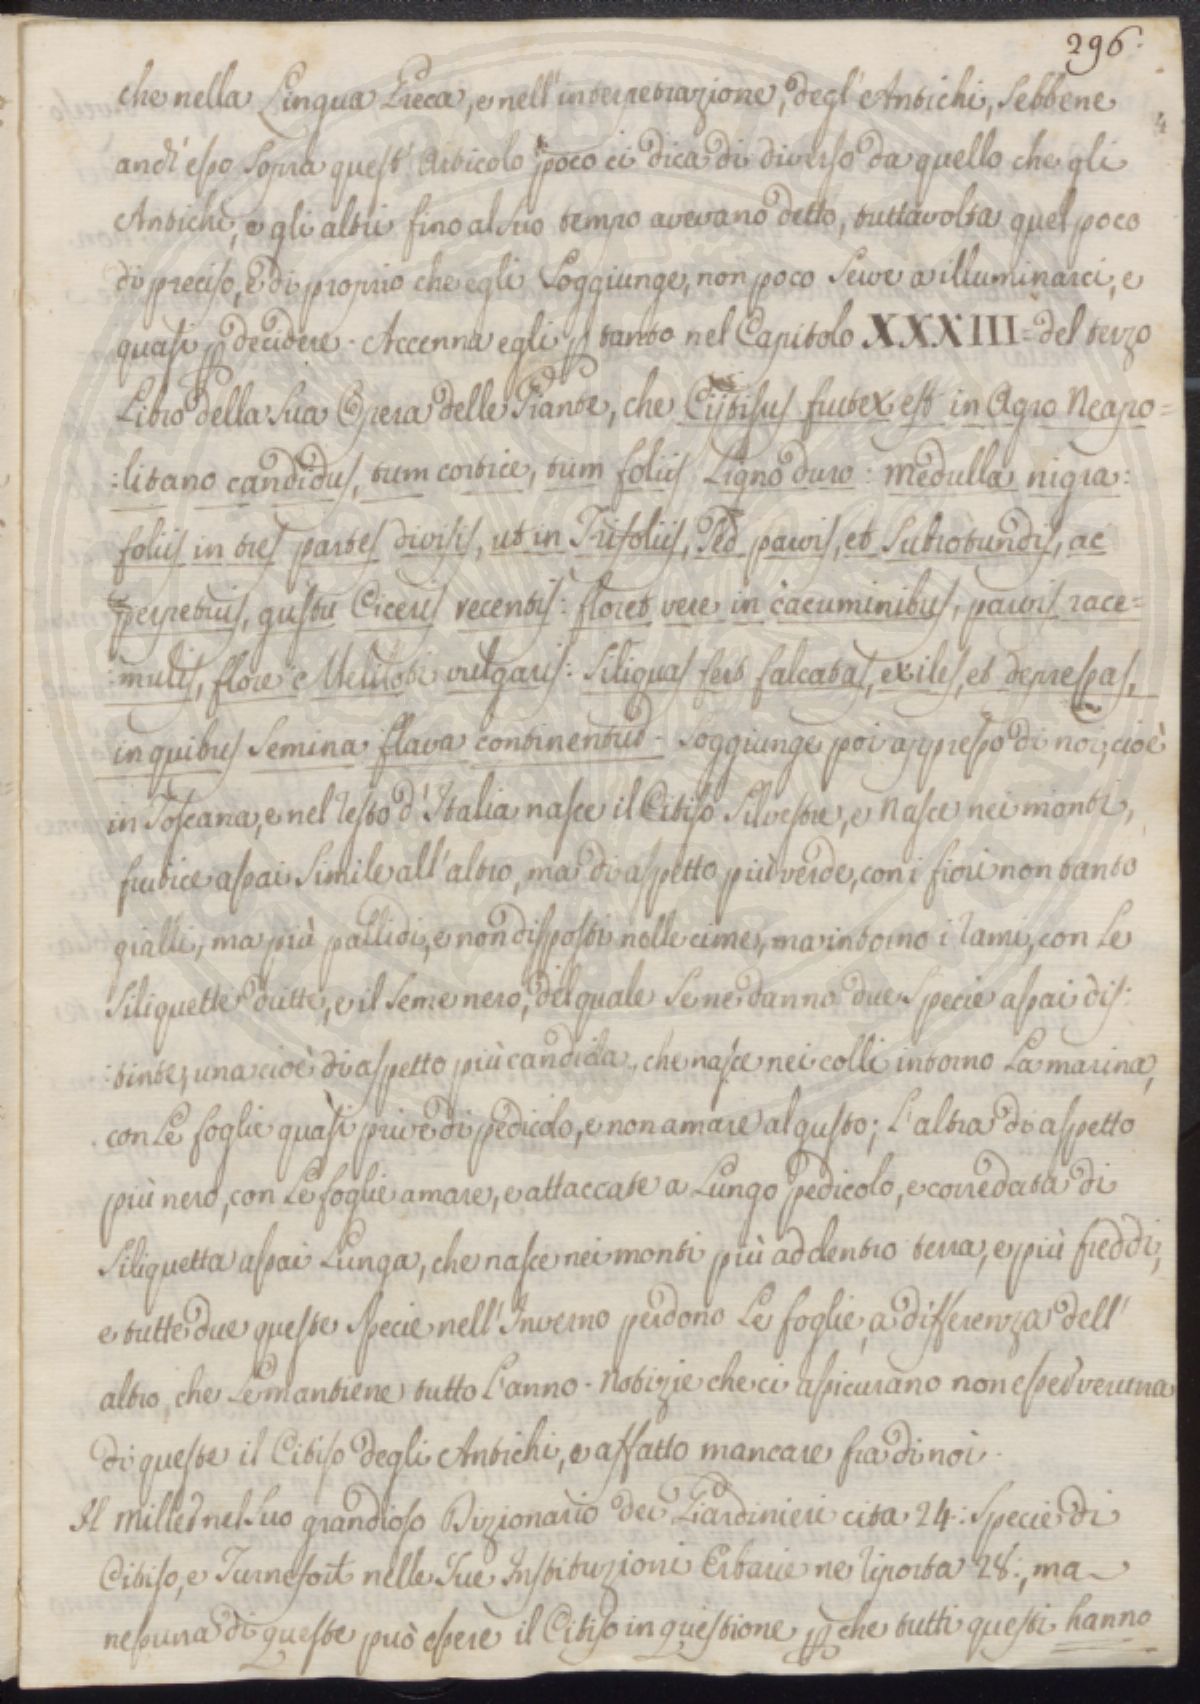 296.
che nella Lingua Greca, e nell'interpetrazione, degl'Antichi, sebbene
anch'esso sopra quest'Articolo poco ci dica di diverso da quello che gli
Antichi, e gli altri fino al suo tempo avevano detto, tuttavolta quel poco
di preciso, e di proprio che egli soggiunge, non poco serve a illuminarci, e
quasi p decidere. Accenna egli p tanto nel Capitolo XXXIII= del terzo
Libro della sua Opera delle Piante, che Cijtisus frutex est in Agro Neapo=
:litano candidus, tum cortice, tum foliis Ligno duro: medulla nigra:
foliis in tres partes divisis, ut in Trifoliis, sed parvis, et subrotundis, ac
perpetuis, gustu Ciceris recentis: floret vere in cacuminibus, parvis race=
:mulis, flore Meliloti vulgaris: siliquas fert falcatas, exiles, et depressas,
in quibus semina flava continentur. Soggiunge poi appresso di noi, cioè
in Toscana, e nel resto d'Italia nasce il Citiso Silvestre, e nasce nei monti,
frutice assai simile all'altro, ma di aspetto più verde, con i fiori non tanto
gialli, ma più pallidi, e non disposti nelle cime, ma intorno i rami, con le
siliquette dritte, e il seme nero, del quale se ne danno due specie assai dis:
:tinte, una cioè di aspetto più candida, che nasce nei colli intorno la marina,
con le foglie quasi prive di pedicolo, e non amare al gusto; l'altra di aspetto
più nero, con le foglie amare, e attaccate a lungo pedicolo, e corredata di
siliquetta assai lunga, che nasce nei monti più addentro terra, e più freddi,
e tutte due queste specie nell'Inverno perdono le foglie, a differenza dell'
altro, che le mantiene tutto l'anno. Notizie che ci assicurano non esser veruna
di queste il Citiso degli Antichi, e affatto mancare fra di noi.
Il Miller nel suo grandioso Dizionario dei Giardinieri cita 24: specie di
Citiso, e Turnefort nelle sue Instituzioni Erbarie ne riporta 28:, ma
nessuna di queste può essere il Citiso in questione p che tutti questi hanno